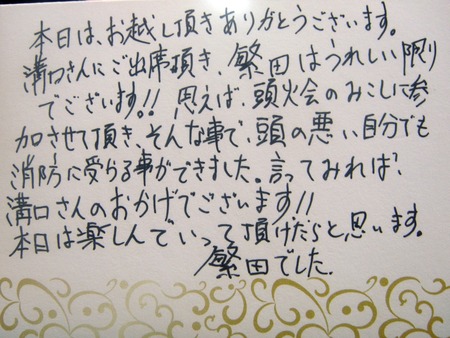 本日は、お越し頂きありがとうございます。
溝口さんにご出席頂き、繁田はうれしい限り
でございます!! 思えば、頭火会のみこしに参
加させて頂き、そんな事で、頭の悪い自分でも
消防に受らる事ができました。言ってみれば、
溝口さんのおかげでございます!!
本日は楽しんでいって頂けだらと思います。
繁田でした.